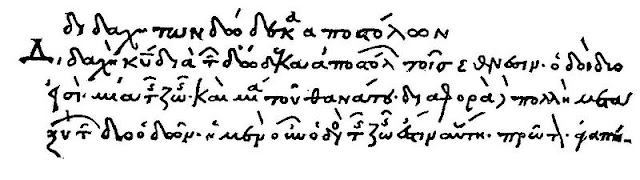 διδαχὴ τῶν δώδεκα ἀποστόλων
Διδαχὴ κυ διὰ τῶν δώδεκα ἀποστόλων τοῖς ἔθνεσιν· ὁδοὶ δύο
εἰσί· μία τῆς ζωῆς· καὶ μία τοῦ θανάτου· διαφορὰ δὲ πολλὴ μετα
ξὺ τῶν δύο ὁδῶν· ἡ μὲν οὖν ὁδὸς τῆς ζωῆς ἐστιν αὕτη· πρῶτον· ἀγαπή